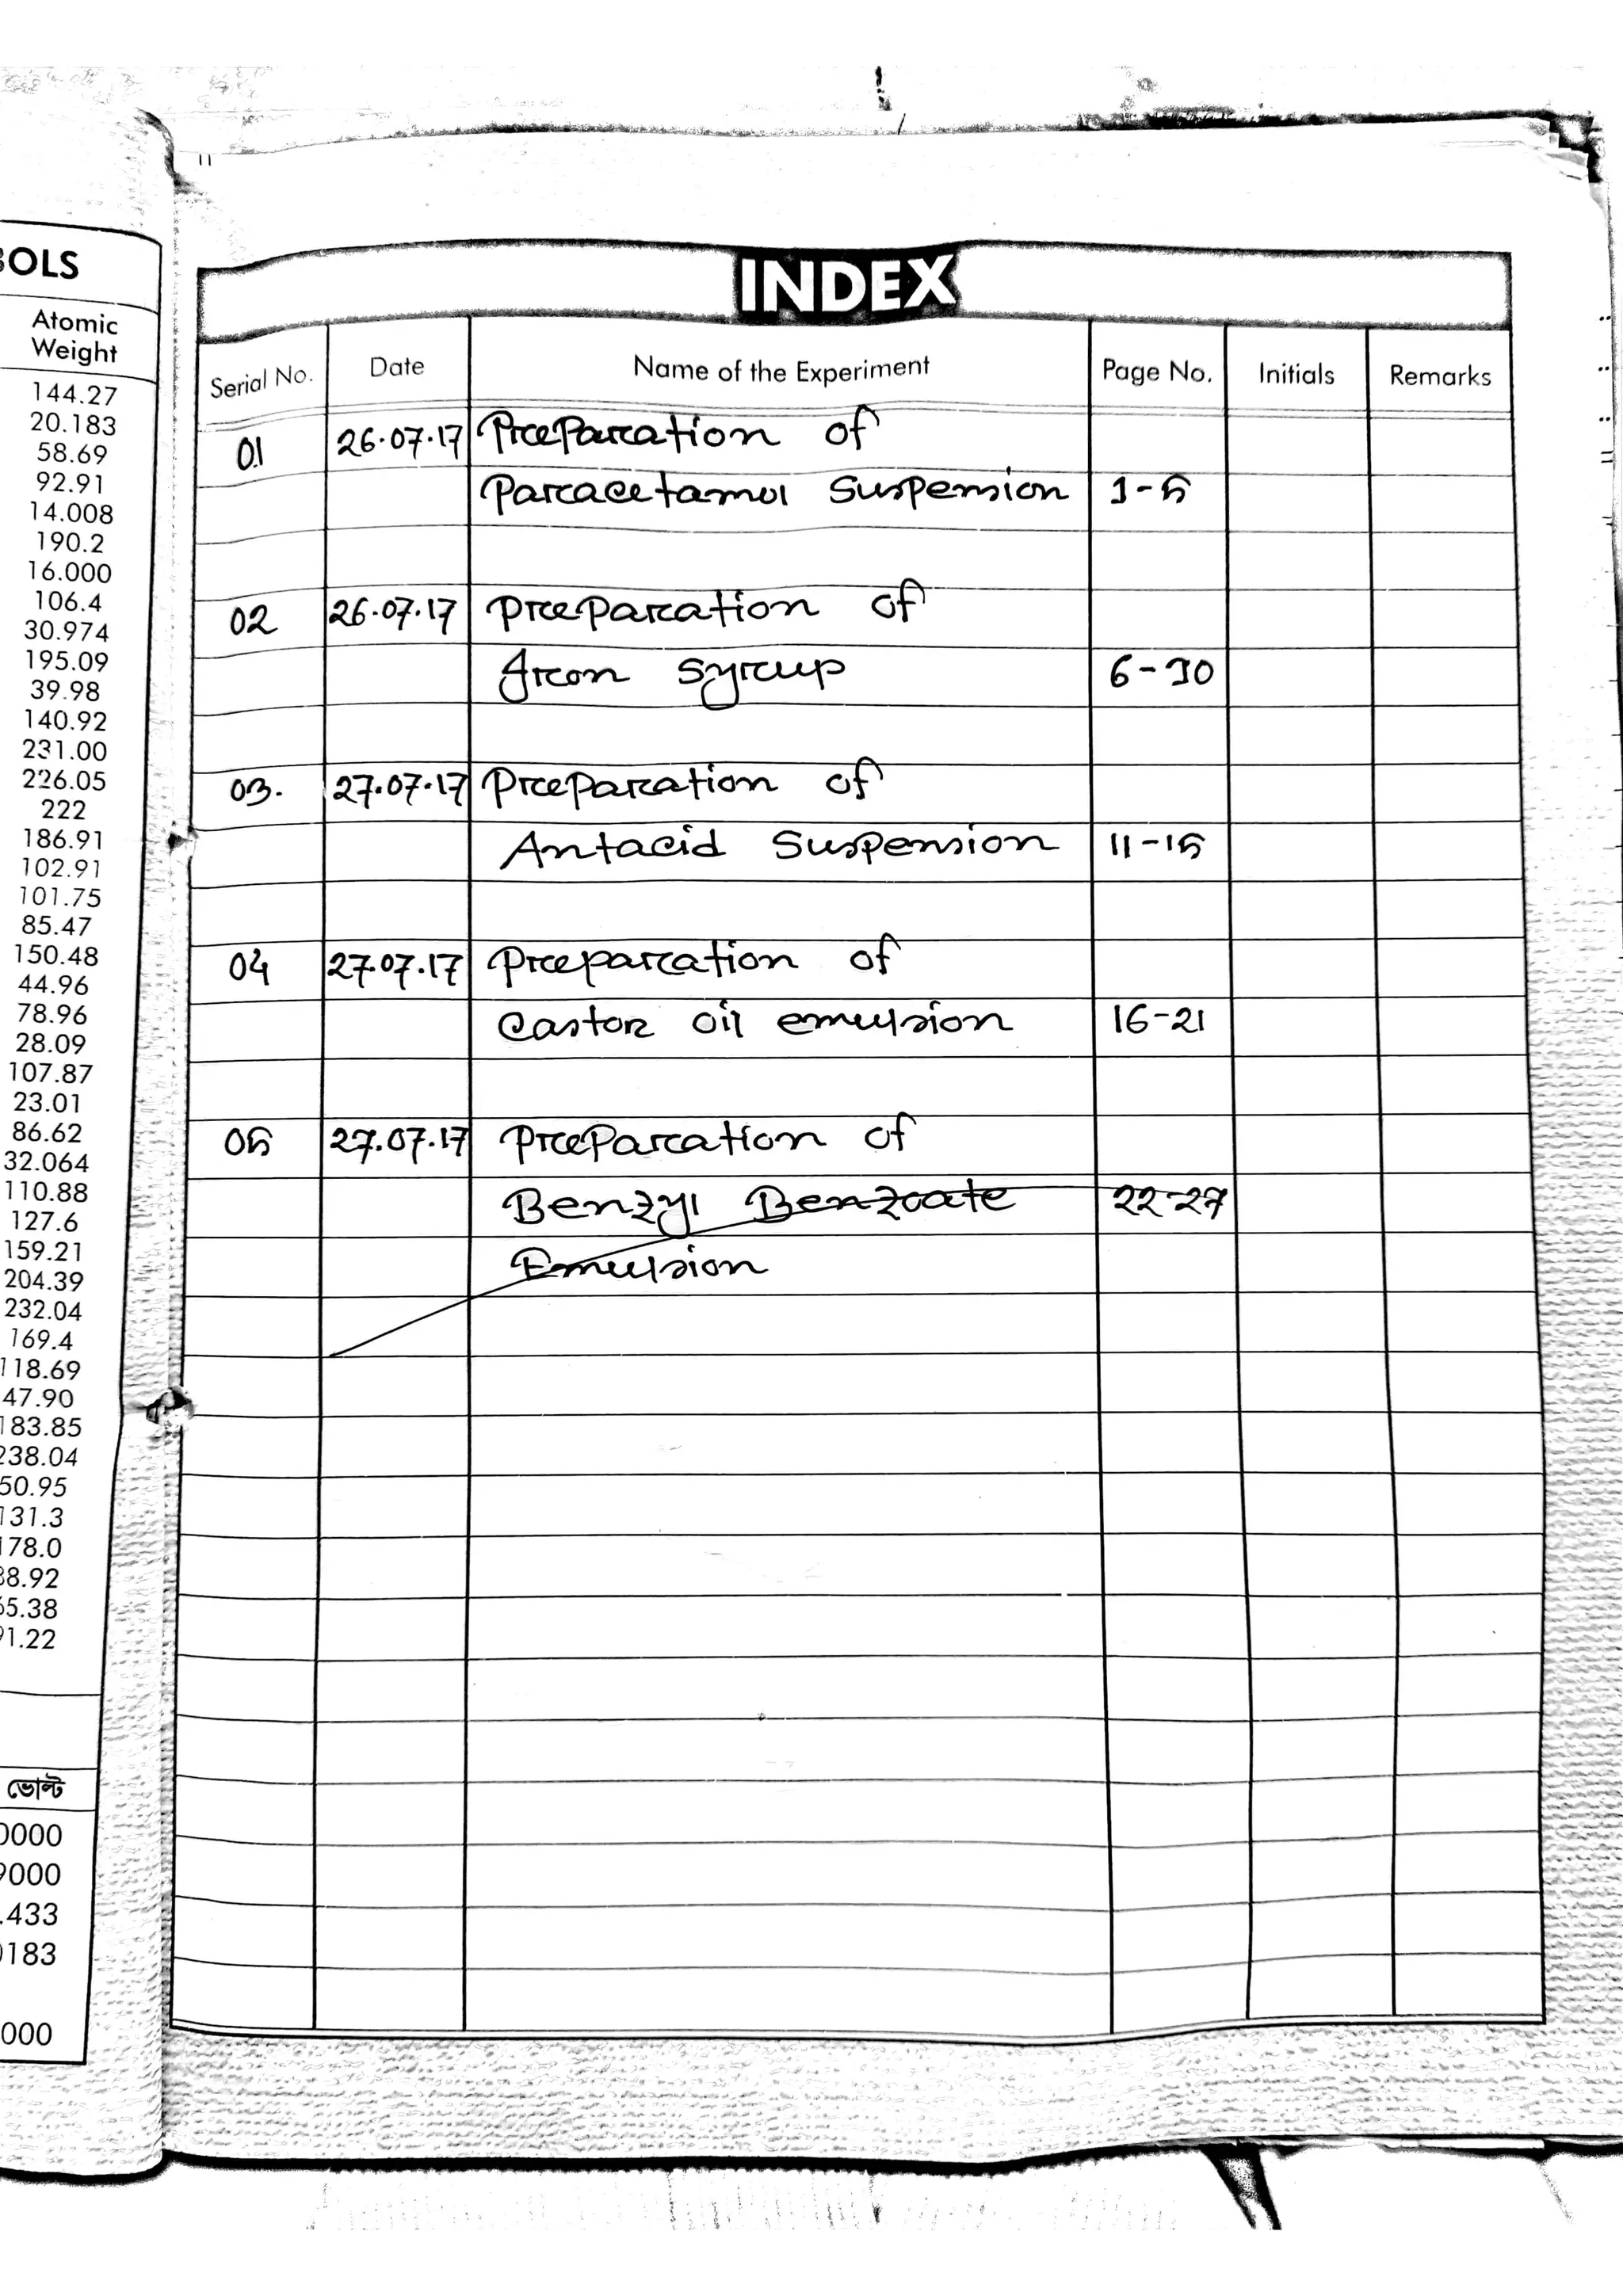 BOLS
Atomic
Weight
144.27
20.183
58.69
92.91
14.008
190.2
16.000
106.4
30.974
195.09
39.98
140.92
231.00
226.05
222
186.91
102.91
101.75
85.47
150.48
44.96
78.96
28.09
107.87
23.01
86.62
32.064
110.88
127.6
159.21
204.39
232.04
169.4
118.69
47.90
183.85
238.04
50.95
131.3
178.0
88.92
65.38
91.22
ভোল্ট
0000
9000
.433
0183
000
INDEX
Serial No. Date Name of the Experiment Page No. Initials Remarks
01 26.07.17 Preparation of
Paracetamol Suspension 1-5
02 26.07.17 Preparation of
Iron Syrup 6-10
03. 27.07.17 Preparation of
Antacid Suspension 11-15
04 27.07.17 Preparation of
Castor oil emulsion 16-21
05 27.07.17 Preparation of
Benzyl Benzoate 22-27
Emulsion